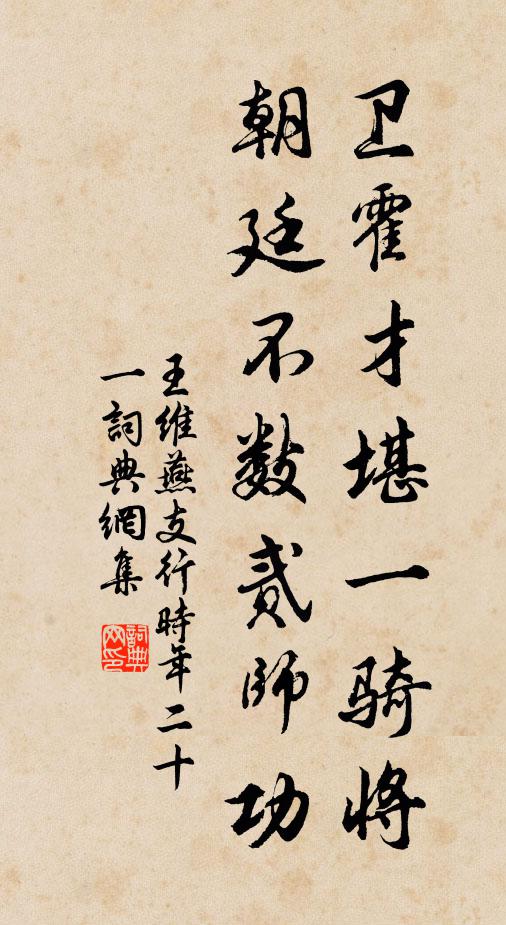 卫霍才堪一骑將
朝廷不数贰師功
王維燕支行時年二十
一詞典網集
詞典
网印